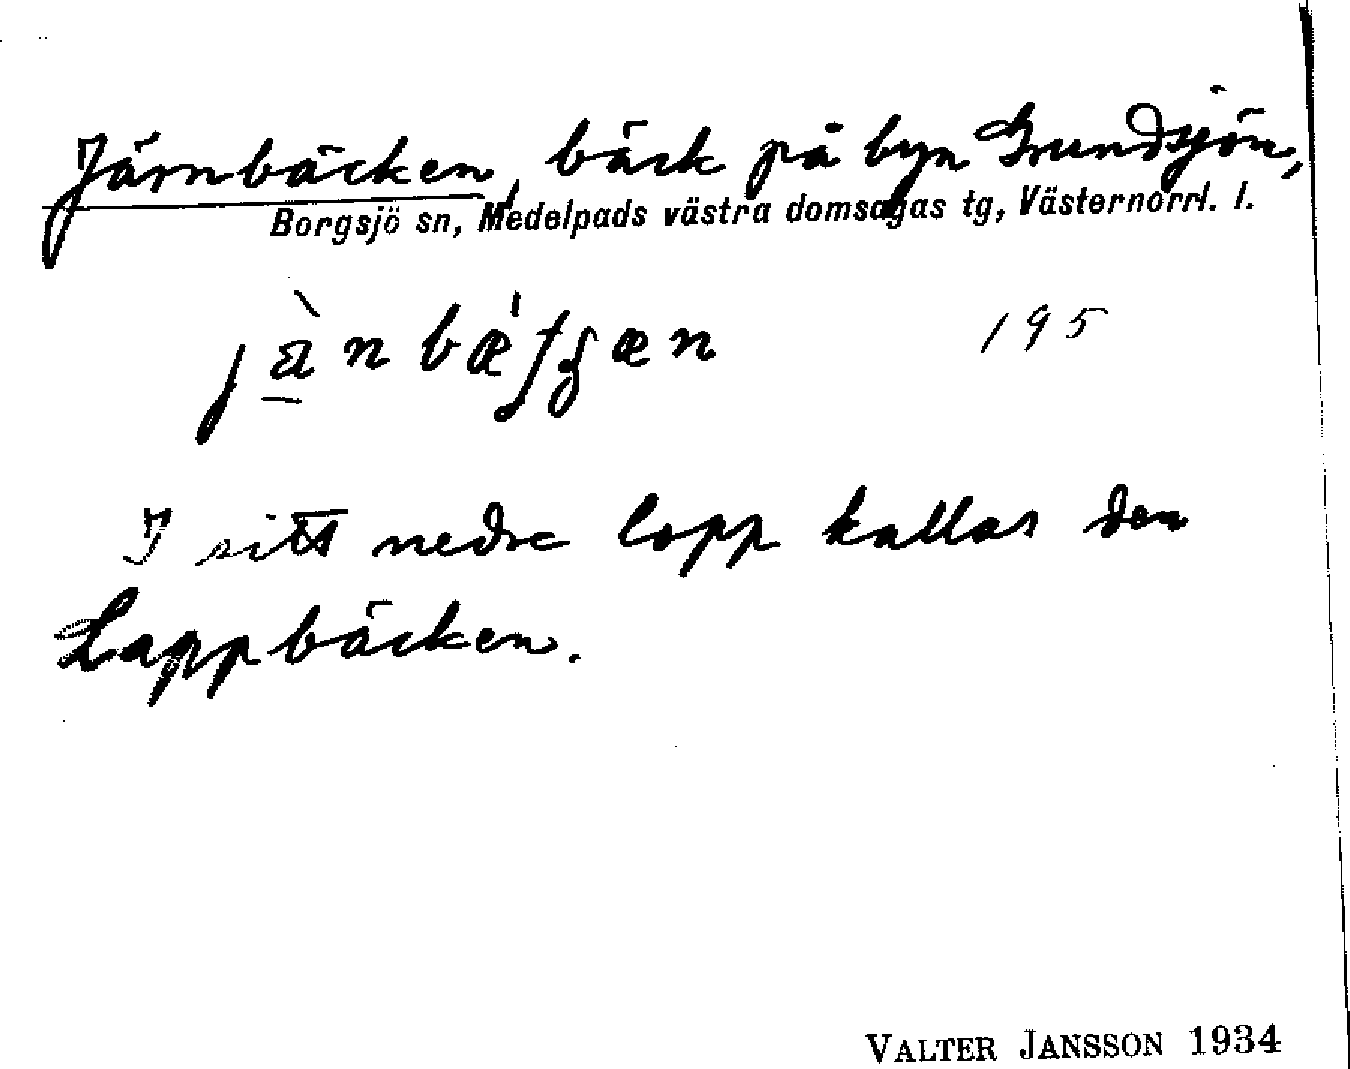 Järnbäcken, bäck på byn Grundsjön,
Borgsjö sn, Medelpads västra domsagas tg, Västernorrl. l.
195
I sitt nedre lopp kallas den
Lappbäcken.
VALTER JANSSON 1934